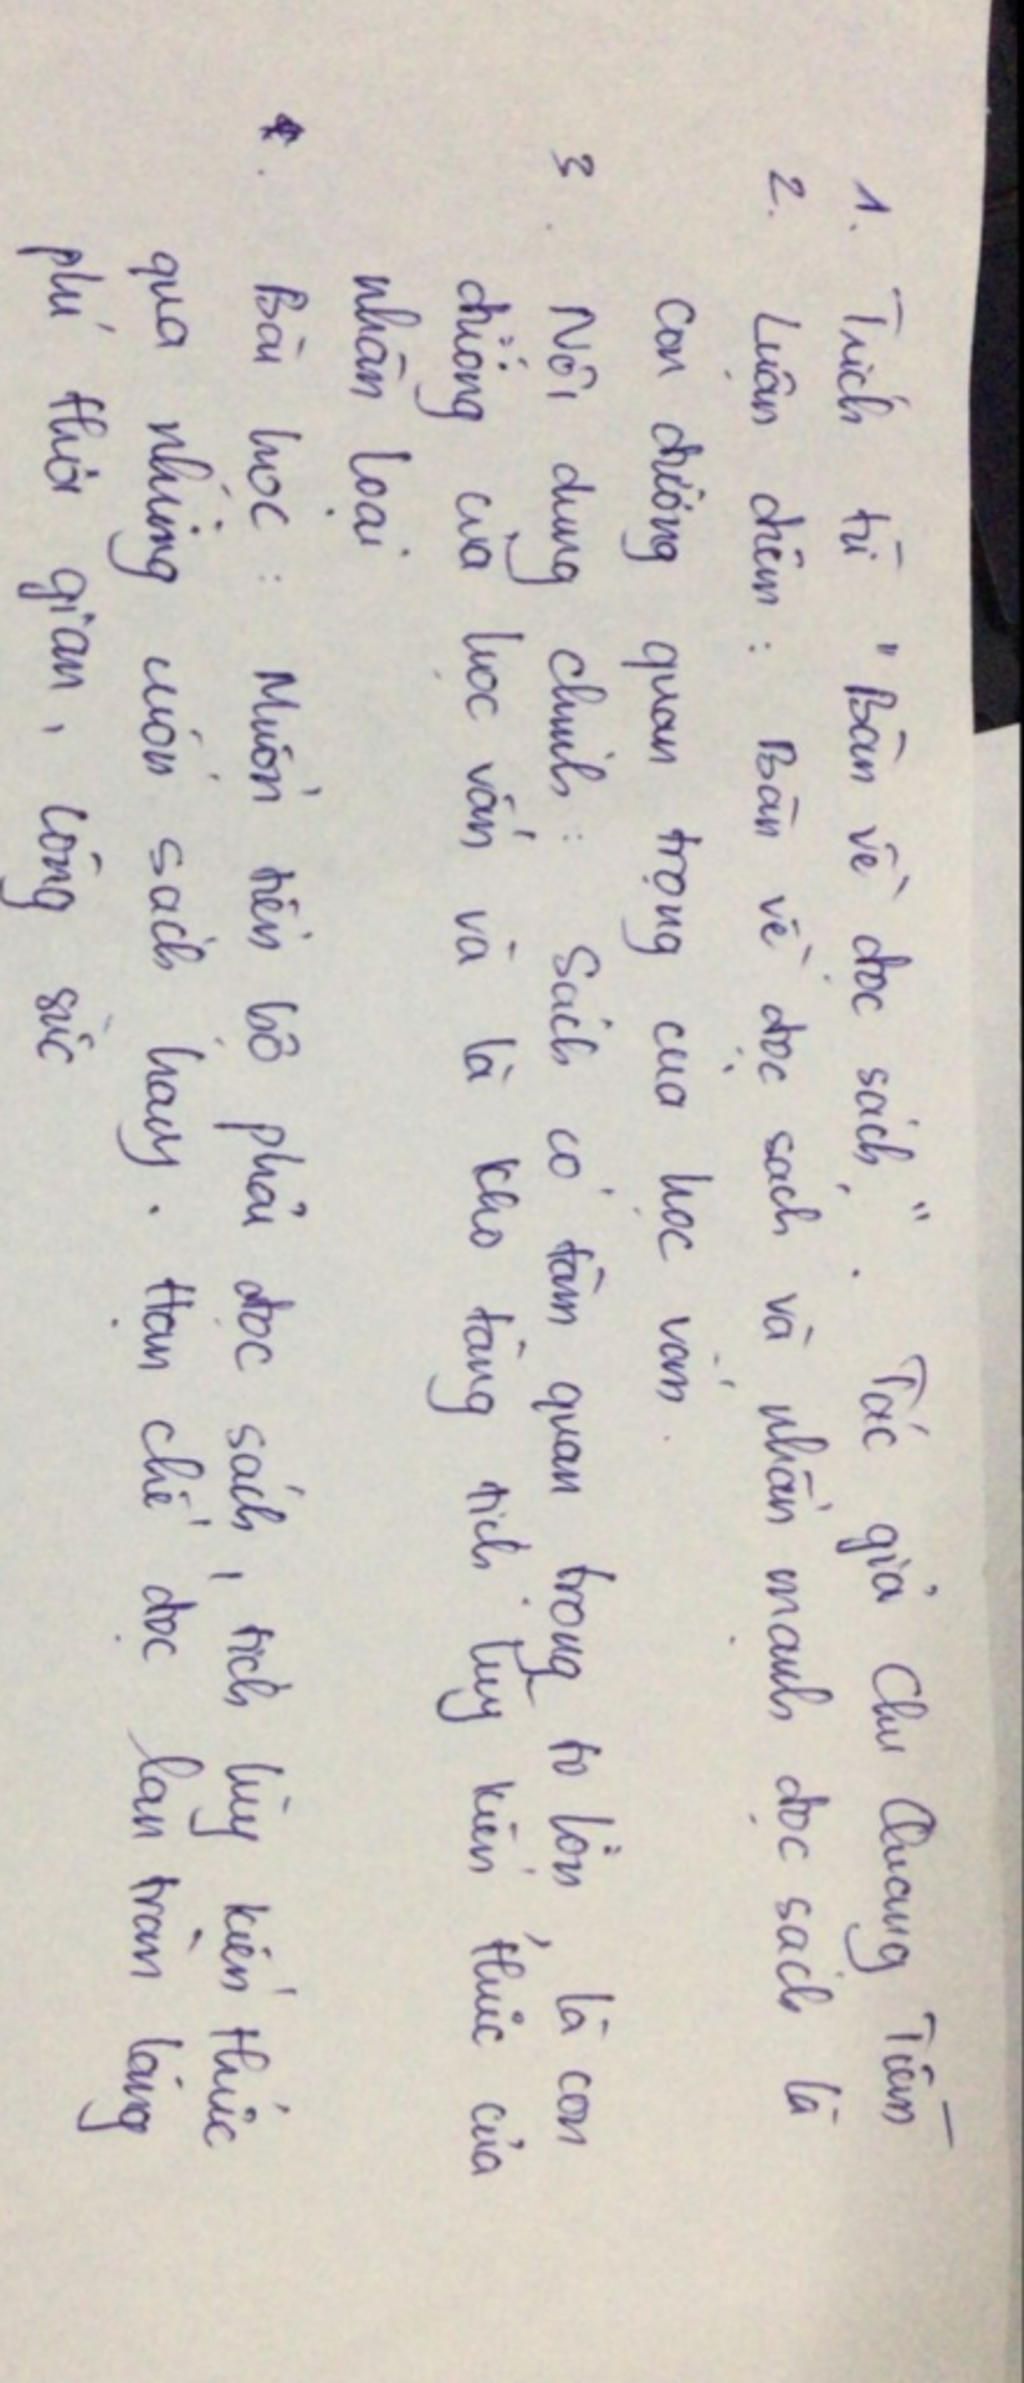 1. Trích từ "Bàn về đọc sách". Tác giả Chu Quang Tiềm
2. Luận điểm: Bàn về đọc sách và nhấn mạnh đọc sách là
con đường quan trọng của học vấn.
3. Nội dung chính: Sách có tầm quan trọng to lớn, là con
đường của học vấn và là kho tàng tích luỹ kiến thức của
nhân loại
4. Bài học: Muốn tiến bộ phải đọc sách, tích lũy kiến thức
qua những cuốn sách hay. Hạn chế đọc lan tràn lãng
phí thời gian, công sức